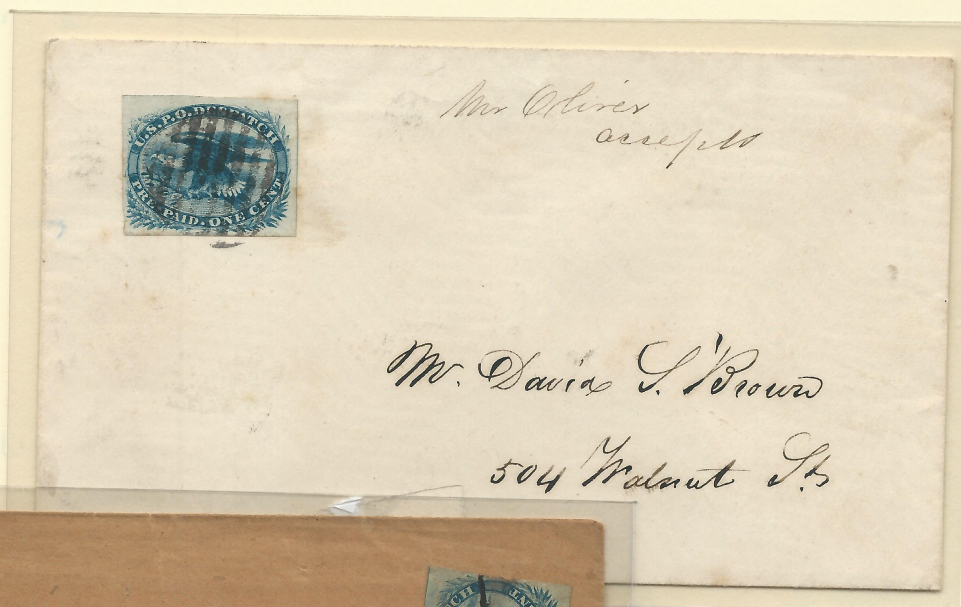 U.S.P.O. DESPATCH
PRE-PAID. ONE CENT
Mr Oliver
accepts
Mr. David S. Brown
504 Walnut St.
CH
ENT